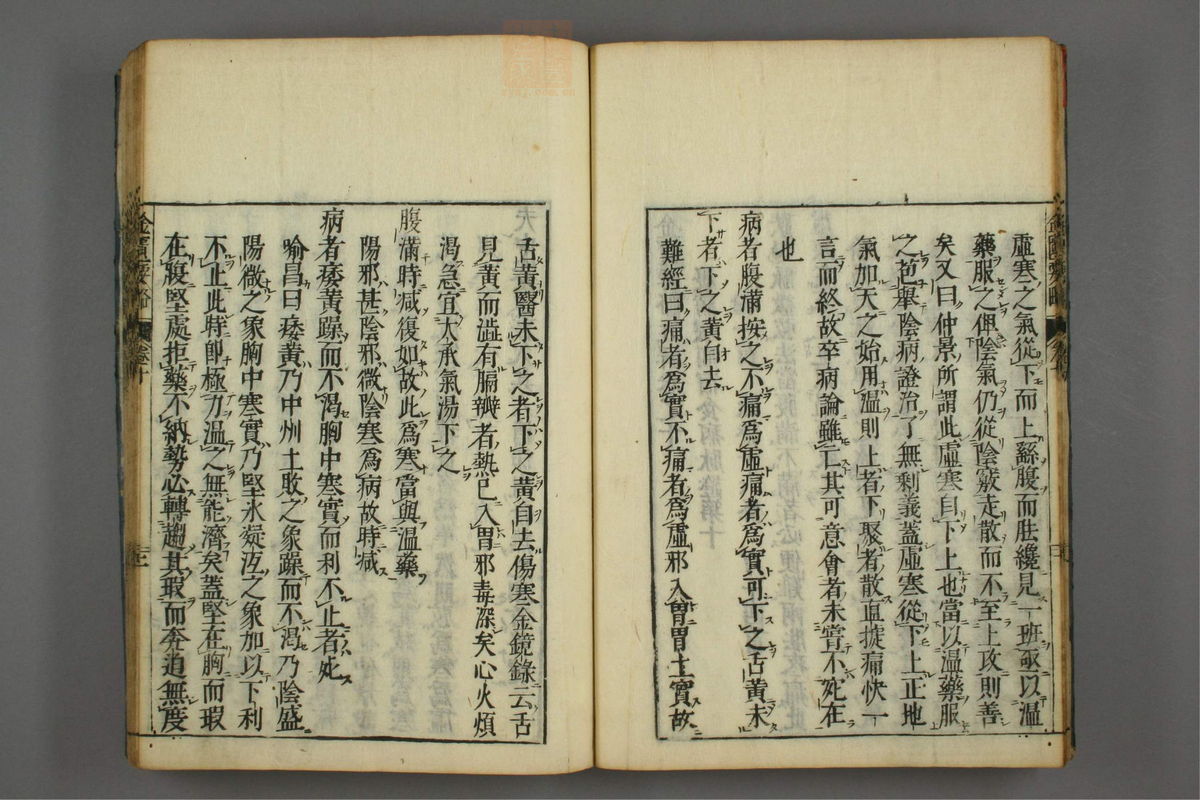 虛寒之氣從下而上繇腹而胠纔見一班亟以溫
藥服之俾陰氣仍從陰竅走散而不至上攻則善
矣又曰仲景所謂此虛寒自下上也當以溫藥服
之苞舉陰病證治了無剩義蓋虛寒從下上正地
氣加天之始用溫則上者下聚者散直捷痛快一
言而終故卒病論雖亡其可意會者未嘗不宛在
也
病者腹滿按之不痛為虛痛者為實可下之舌黃未
下者下之黃自去
難經曰痛者為實不痛者為虛邪入胃胃土實故
舌黃醫未下之者下之黃自去傷寒金鏡錄云舌
見黃而澁有膈瓣者熱已入胃邪毒深矣心火煩
渴急宜大承氣湯下之
腹滿時減復如故此為寒當與溫藥
陽邪甚陰邪微陰寒為病故時減
病者痿黃躁而不渴胸中寒實而利不止者死
喻昌曰痿黃乃中州土敗之象躁而不渴乃陰盛
陽微之象胸中寒實乃堅氷凝沍之象加以下利
不止此時即極力溫之無能濟矣蓋堅在胸而瑕
在腹堅處拒藥不納勢必轉趨其瑕而奔迫無度
金匱要略
卷十